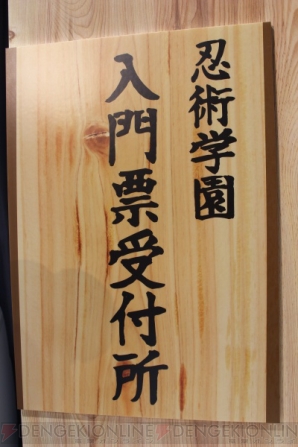 忍術学園
入門票受付所
DENGEKIONLINE DENGEKIONLINE